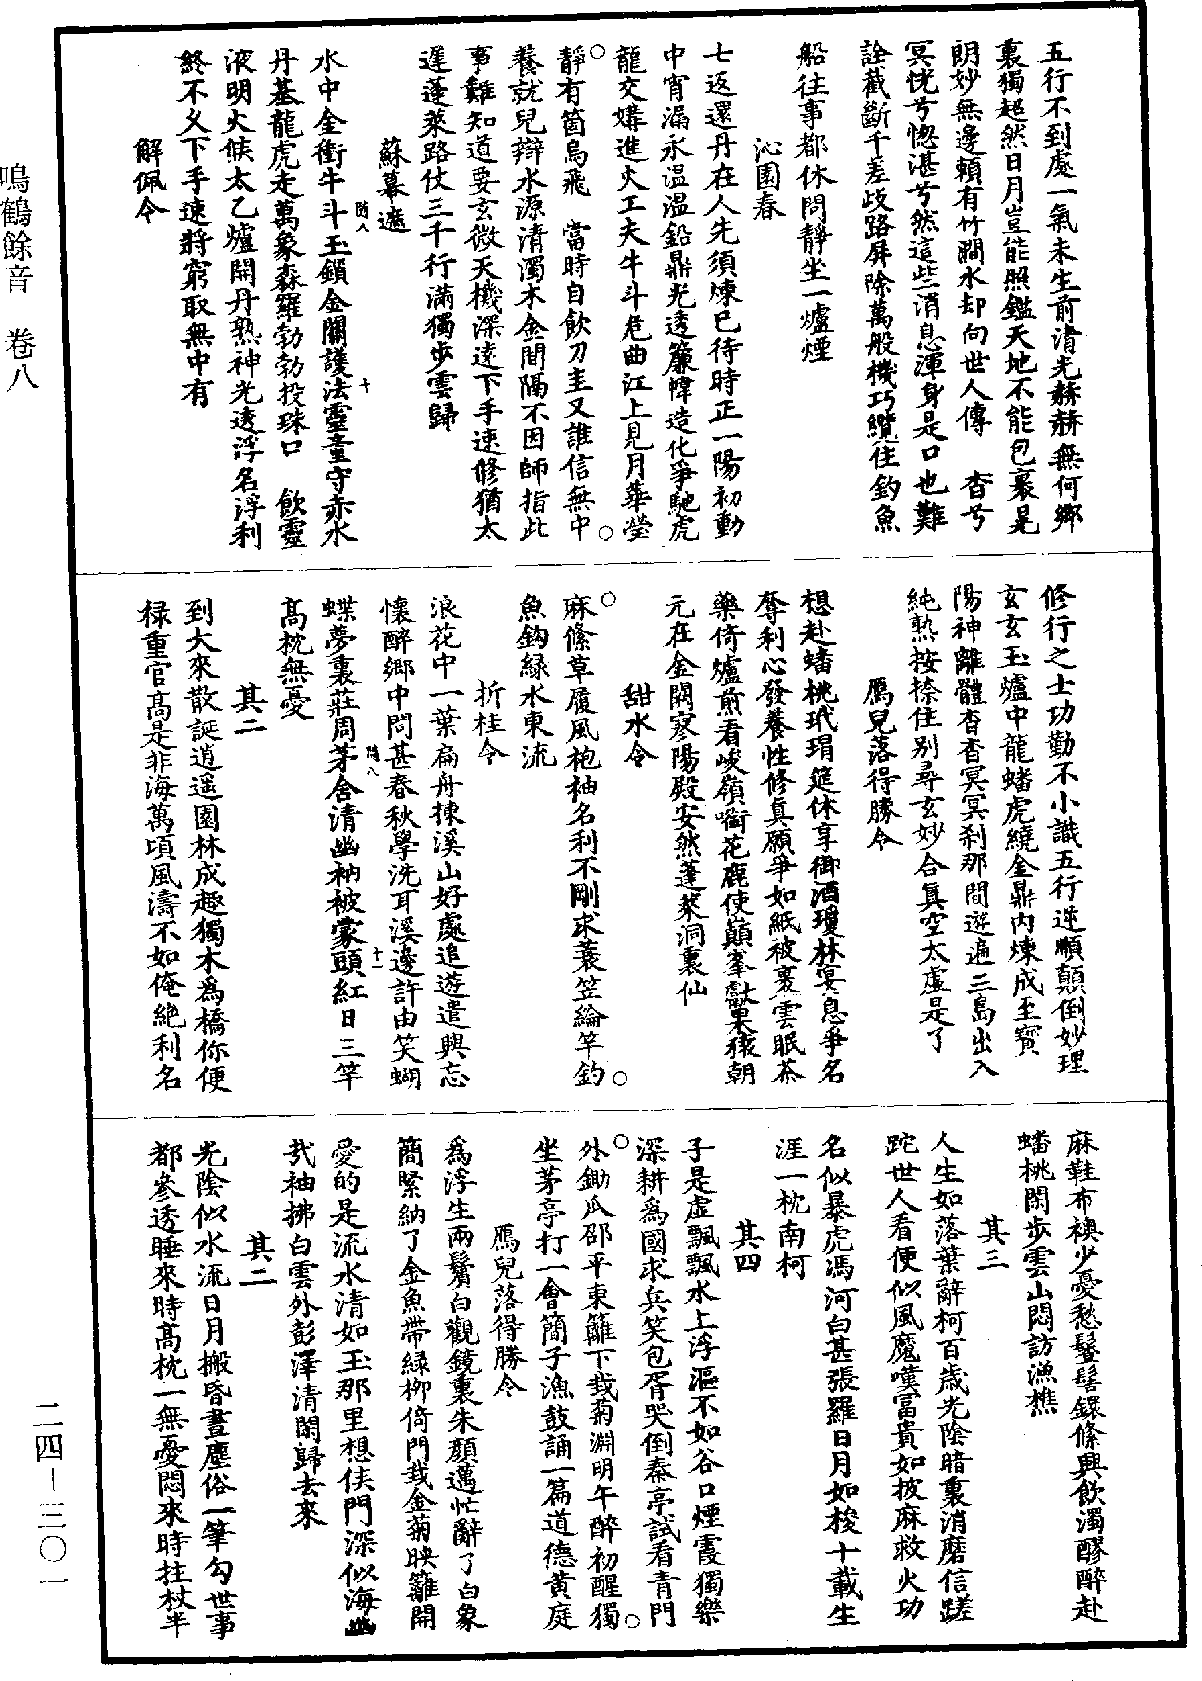 五行不到處一氣未生前清光赫赫無何鄉
裏獨超然日月豈能照鑑天地不能包裹是
朗妙無邊頼有竹澗水却向世人傳　杳兮
冥恍兮惚湛兮然這些消息渾身是口也難
詮截斷千差歧路屏除萬般機巧纜住釣魚
船往事都休問靜坐一爐煙
沁園春
七返還丹在人先須煉己待時正一陽初動
中宵漏永溫溫鉛鼎光透簾幃造化爭馳虎
龍交媾進火工夫牛斗危曲江上見月華瑩
靜有箇烏飛　當時自飲刀圭又誰信無中
養就兒辯水源清濁木金間隔不因師指此
事難知道要玄微天機深遠下手速修猶太
遲蓬萊路仗三千行滿獨步雲歸
蘇幕遮
水中金衝牛斗玉鎖金關護法靈童守赤水
丹基龍虎走萬象森羅勃勃投珠口　飲靈
液明火候太乙爐開丹熟神光透浮名浮利
終不久下手速將窮取無中有
解佩令
修行之士功勤不小識五行迷順顛倒妙理
玄玄玉爐中龍蟠虎繞金鼎內煉成至寶
陽神離體杳杳冥冥刹那間遊遍三島出入
純熟按捺住别尋玄妙合真空太虛是了
鴈兒落得勝令
想赴蟠桃玳瑁筵休享御酒瓊林宴息爭名
奪利心發養性修真願爭如紙被裹雲眠茶
藥倚爐煎看峻嶺啣花鹿使巔峯獻果猿朝
元在金闕寥陽殿安然蓬萊洞裏仙
甜水令
麻絛草履風袍袖名利不剛求蓑笠綸竿釣
魚鈎緑水東流
折桂令
浪花中一葉扁舟揀溪山好處追遊遣興忘
懷醉鄉中問甚春秋學洗耳溪邊許由笑蝴
蝶夢裏莊周茅舍清幽衲被蒙頭紅日三竿
高枕無憂
其二
到大來散誕逍遥園林成趣獨木爲橋你便
禄重官高是非海萬頃風濤不如俺絶利名
麻鞋布襖少憂愁鬅髻鐶絛興飲濁醪醉赴
蟠桃閑步雲山悶訪漁樵
其三
人生如落葉辭柯百歲光陰暗裏消磨信蹉
跎世人看便似風魔嘆富貴如披麻救火功
名似暴虎馮河白甚張羅日月如梭十載生
涯一枕南柯
其四
子是虛飄飄水上浮漚不如谷口煙霞獨樂
深耕爲國求兵笑包胥哭倒秦亭試看青門
外鋤瓜邵平東籬下栽菊淵明午醉初醒獨
坐茅亭打一會簡子漁鼓誦一篇道德黄庭
鴈兒落得勝令
爲浮生兩鬢白觀鏡裏朱顔邁忙辭了白象
簡緊納了金魚帶緑柳倚門栽金菊映籬開
愛的是流水清如玉那里想侯門深似海幽
㢤袖拂白雲外彭澤清閑歸去來
其二
光陰似水流日月搬昏晝塵俗一筆勾世事
都參透睡來時高枕一無憂悶來時拄杖半
鳴鶴餘音　卷八
二四－三〇一